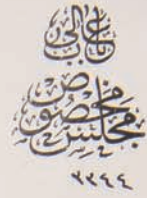 باب عالی
مجلس مخصوص
٣٣٤٤